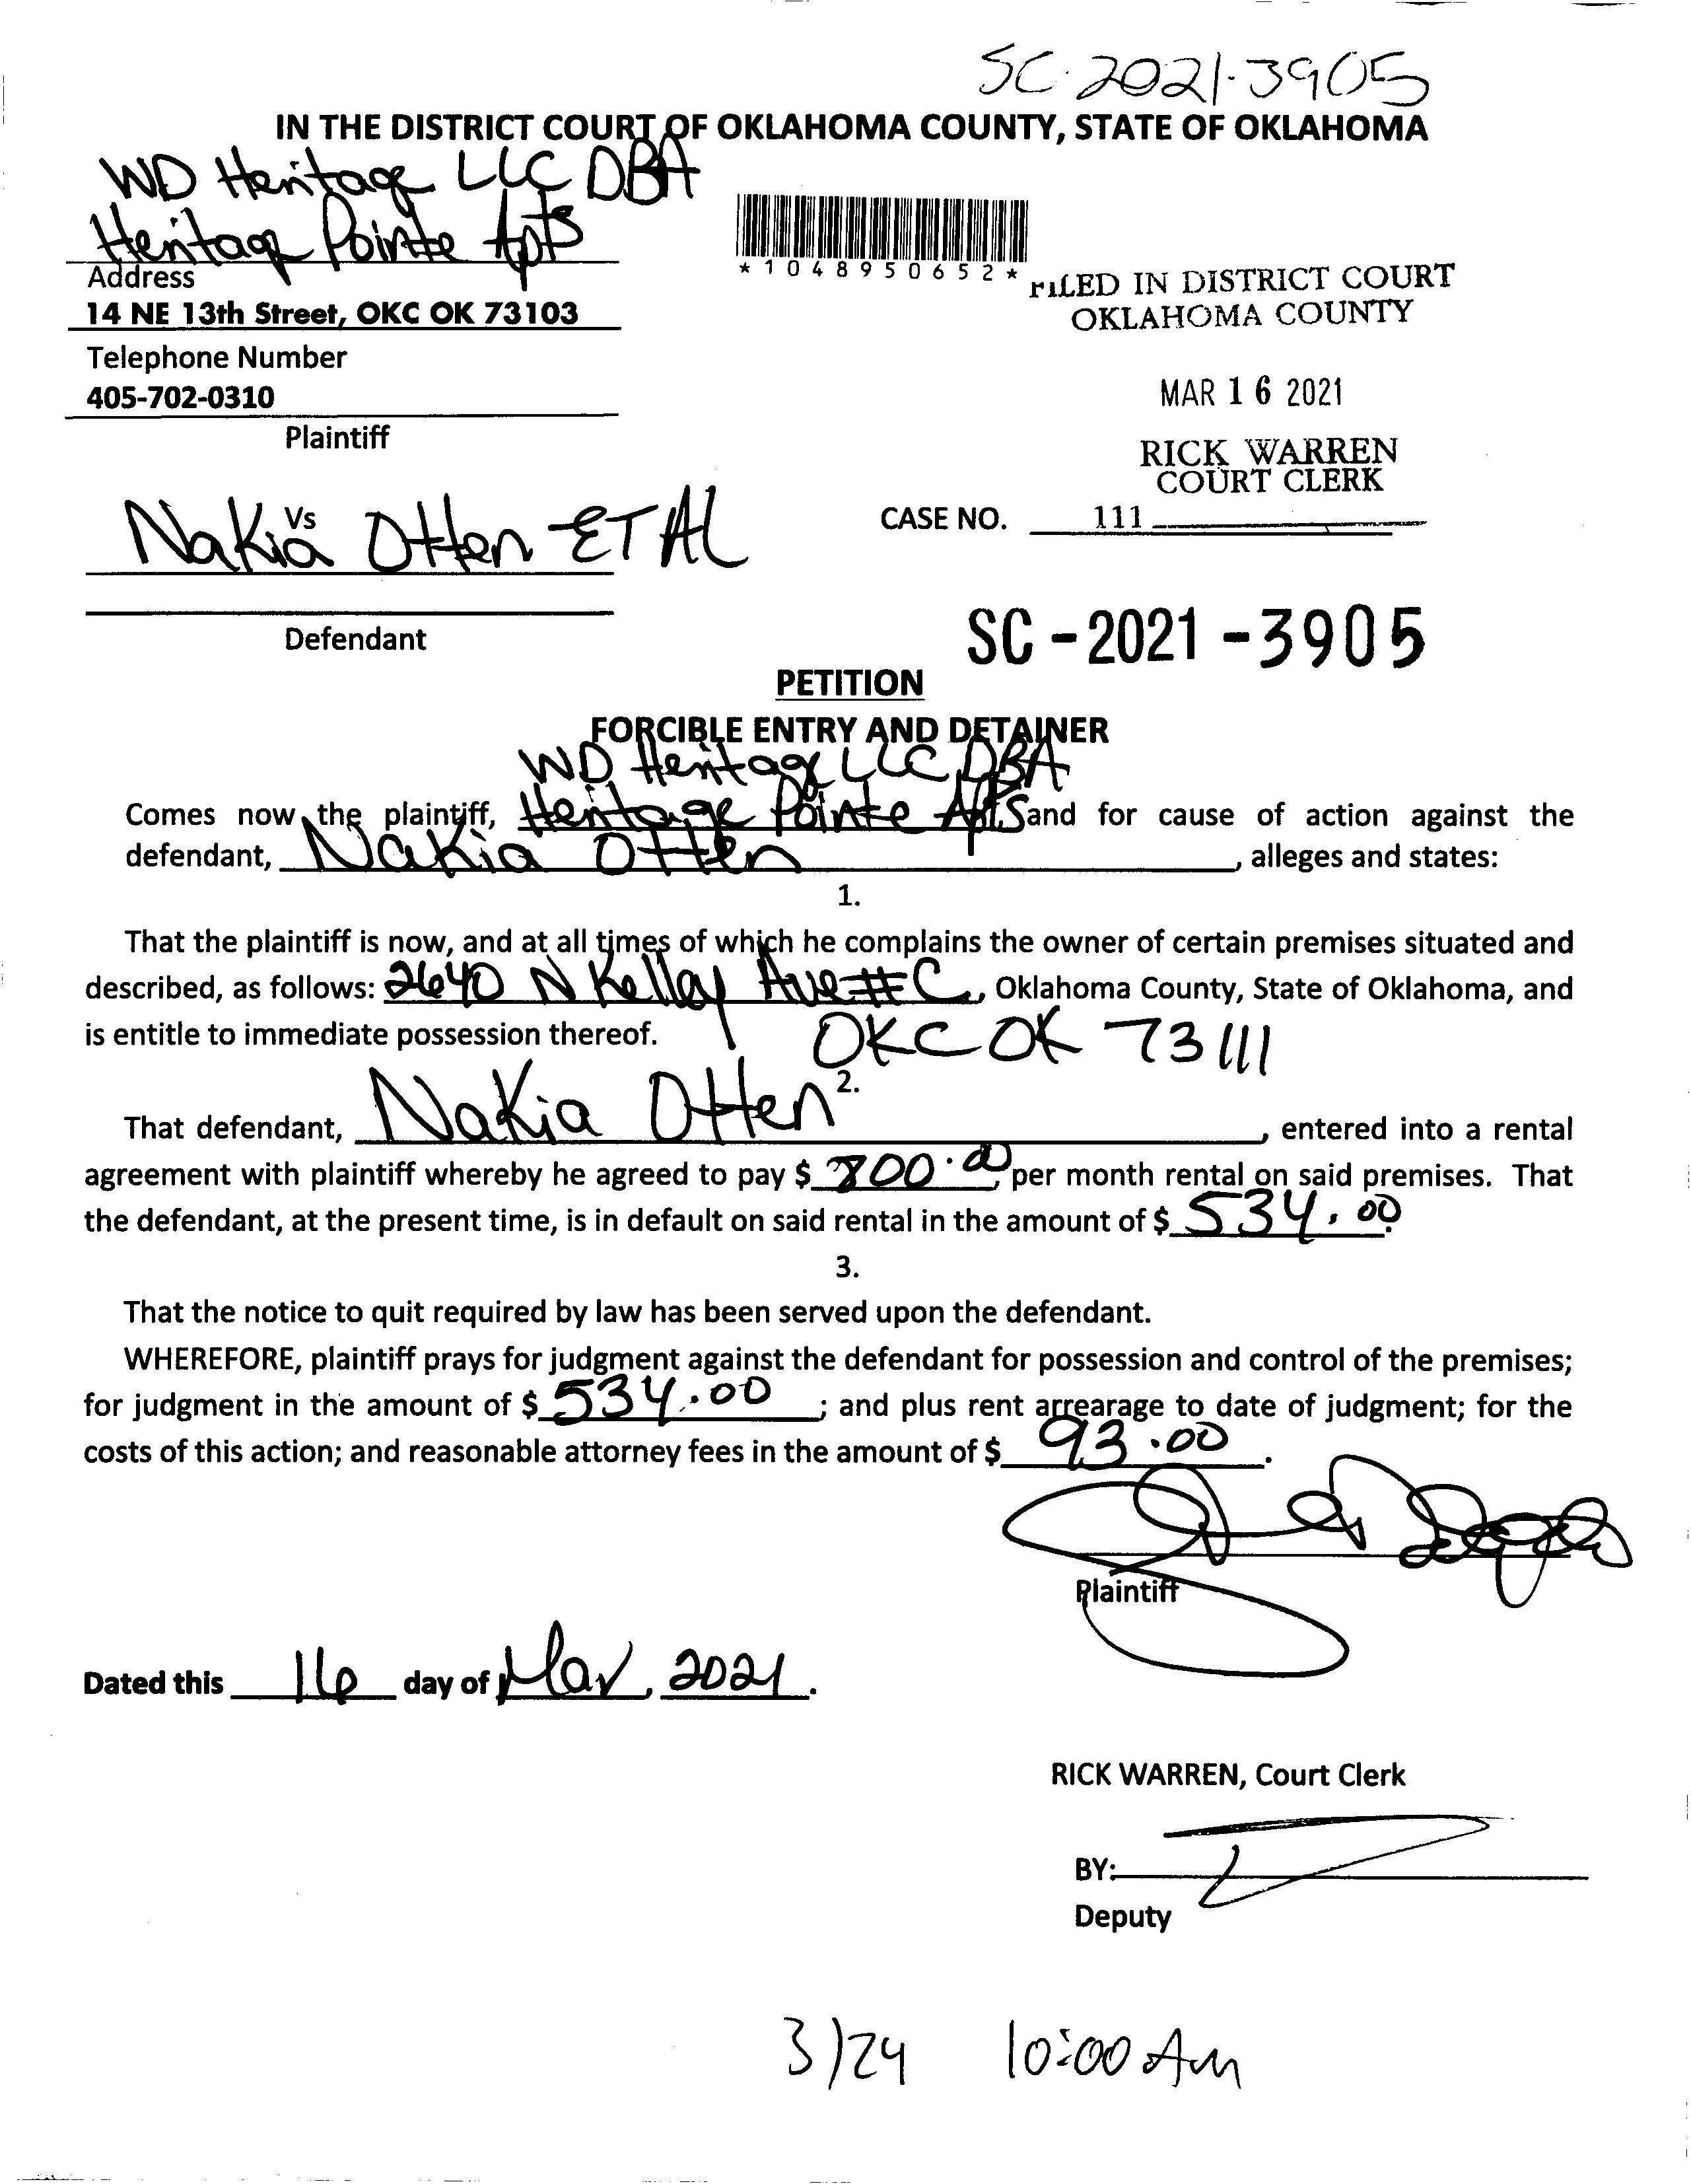 SC-2021-3905
IN THE DISTRICT COURT OF OKLAHOMA COUNTY, STATE OF OKLAHOMA
WD Heritage LLC DBA
Heritage Pointe Apts
*1048950652*
Address
14 NE 13th Street, OKC OK 73103
FILED IN DISTRICT COURT
OKLAHOMA COUNTY
Telephone Number
405-702-0310
MAR 16 2021
Plaintiff
RICK WARREN
COURT CLERK
Vs
Nakia Otten ET AL
CASE NO. 111
Defendant
SC-2021-3905
PETITION
FORCIBLE ENTRY AND DETAINER
WD Heritage LLC DBA
Comes now the plaintiff, Heritage Pointe Apts and for cause of action against the
defendant, Nakia Otten, alleges and states:
1.
That the plaintiff is now, and at all times of which he complains the owner of certain premises situated and
described, as follows: 2640 N Kelley Ave #C, Oklahoma County, State of Oklahoma, and
is entitle to immediate possession thereof. OKC OK 73111
2.
That defendant, Nakia Otten, entered into a rental
agreement with plaintiff whereby he agreed to pay $ 800.00, per month rental on said premises. That
the defendant, at the present time, is in default on said rental in the amount of $ 534.00.
3.
That the notice to quit required by law has been served upon the defendant.
WHEREFORE, plaintiff prays for judgment against the defendant for possession and control of the premises;
for judgment in the amount of $ 534.00; and plus rent arrearage to date of judgment; for the
costs of this action; and reasonable attorney fees in the amount of $ 93.00.
Plaintiff
Dated this 16 day of Mar, 2021.
RICK WARREN, Court Clerk
BY:
Deputy
3/24 10:00 AM